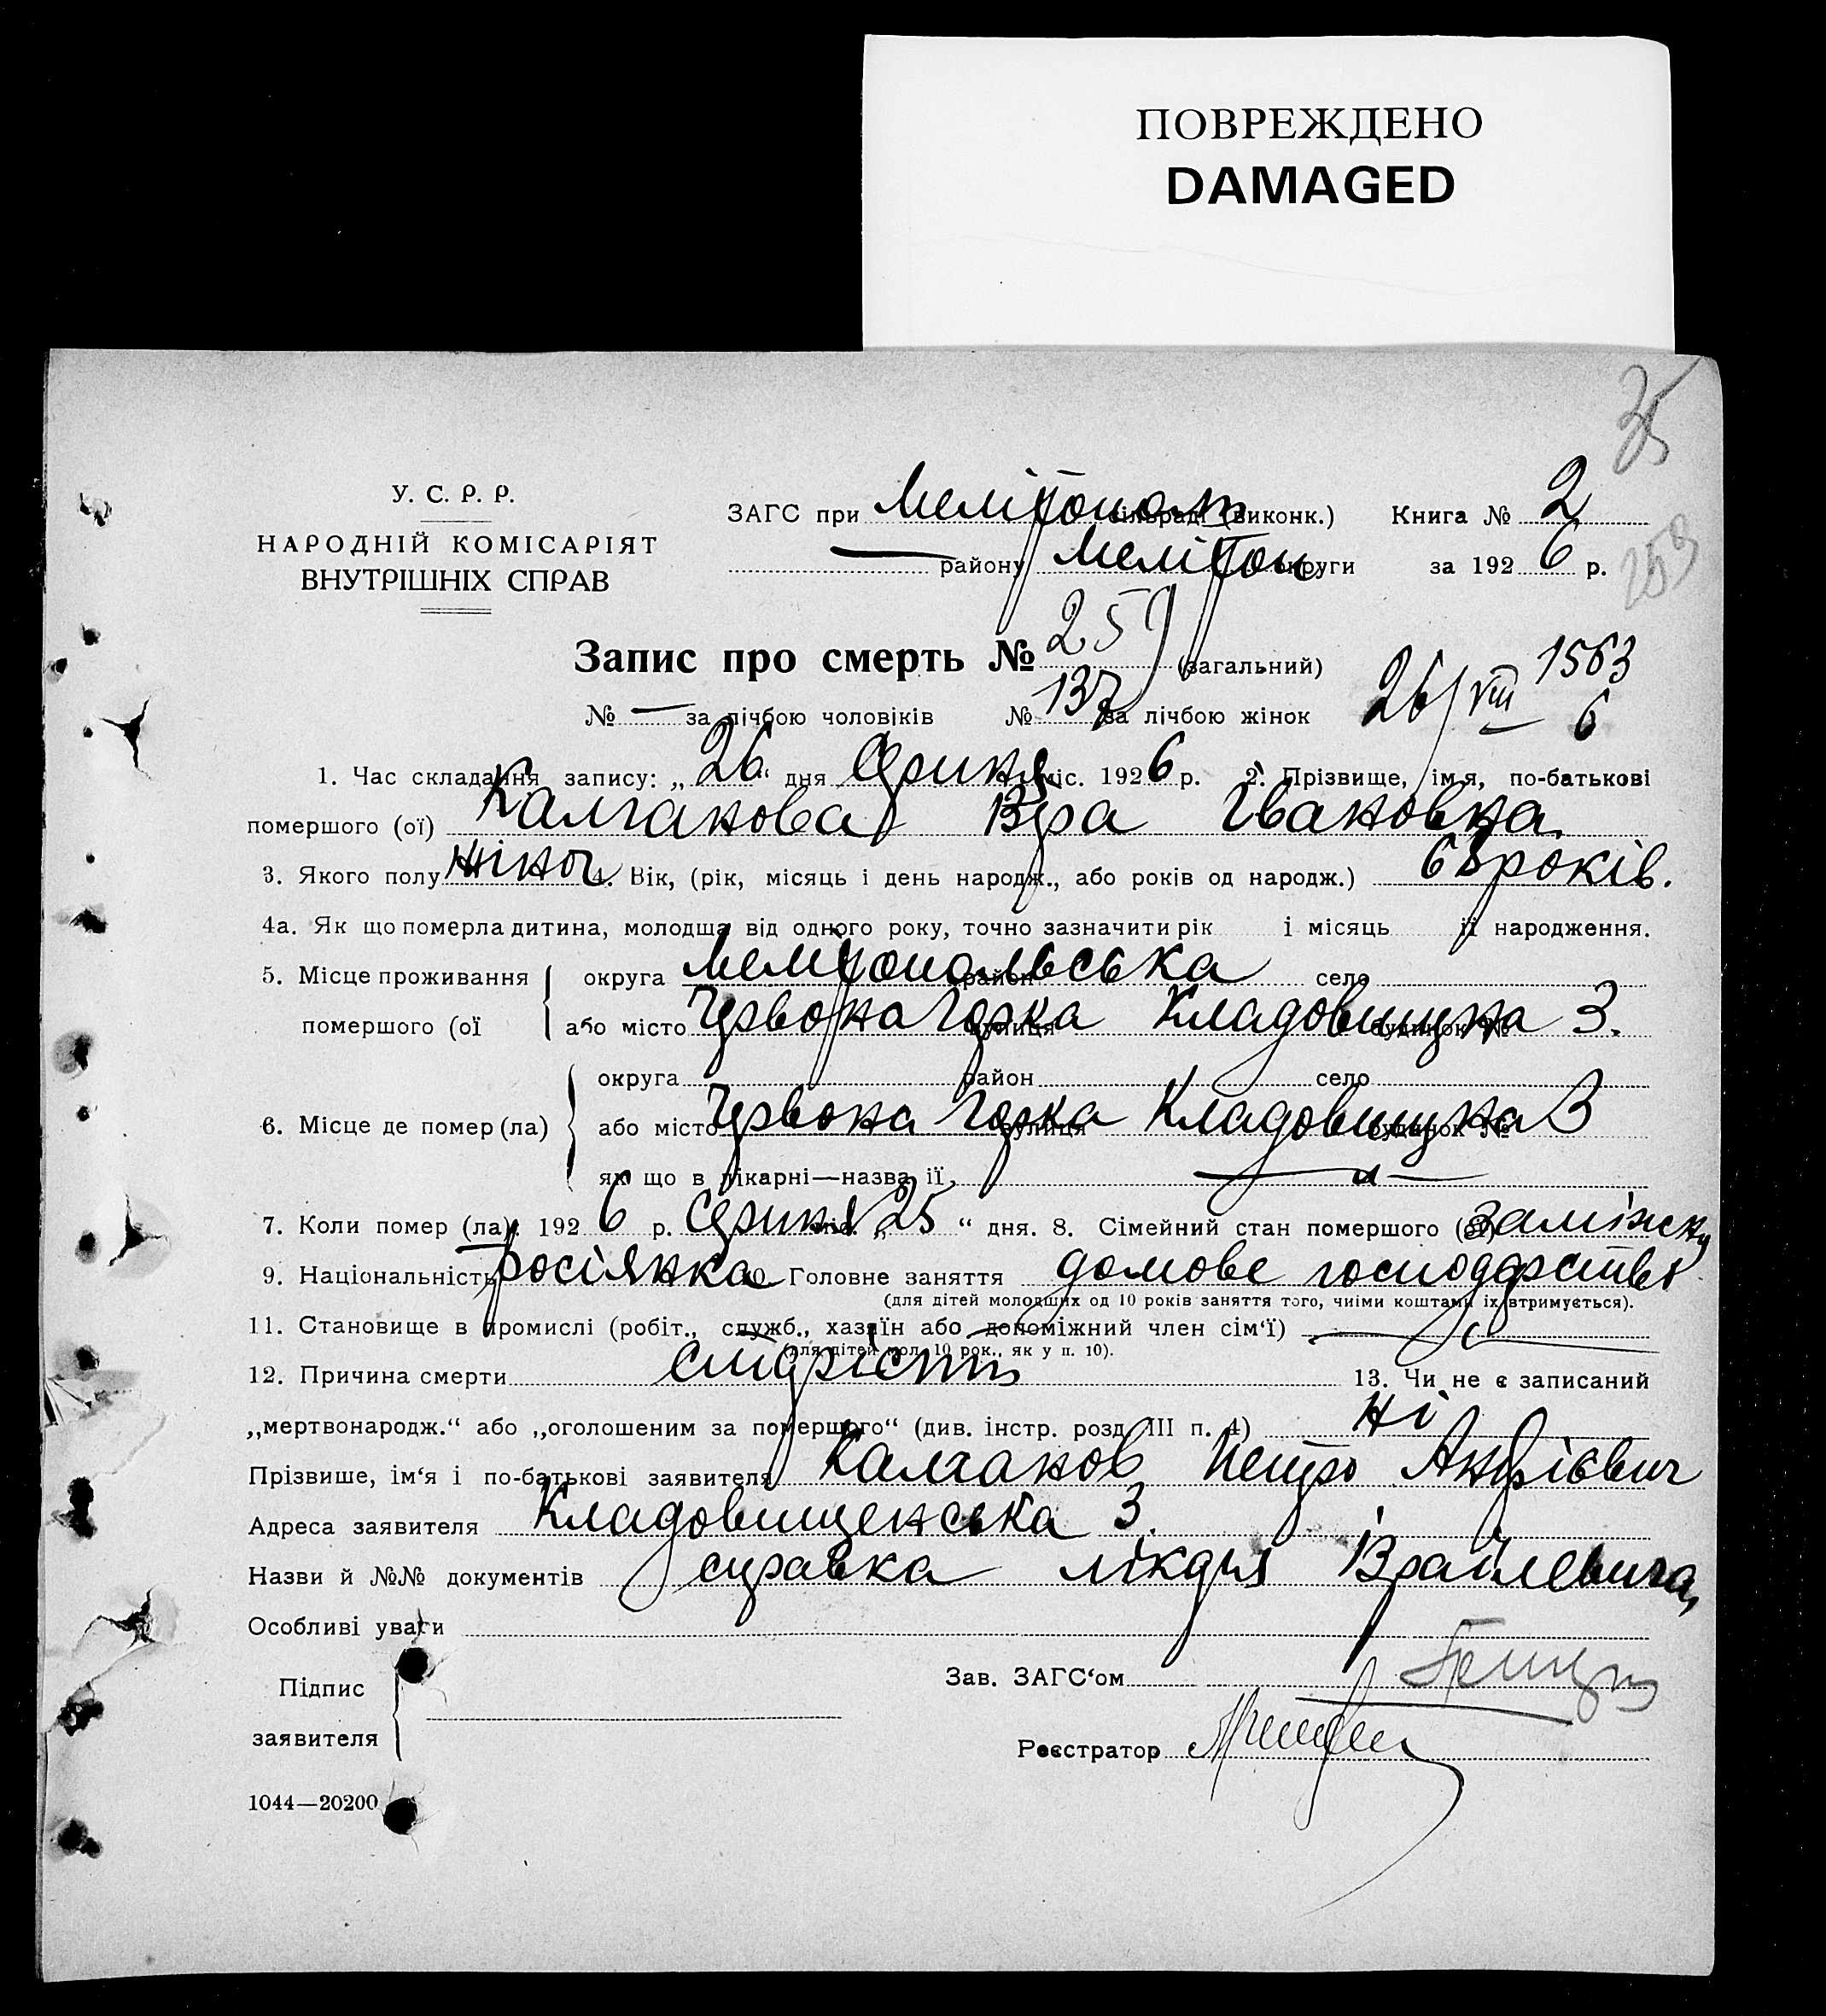 ПОВРЕЖДЕНО
DAMAGED
35
У. С. Р. Р.
НАРОДНІЙ КОМІСАРІЯТ
ВНУТРІШНІХ СПРАВ
ЗАГС при сільраді (виконк.) Книга № 2
— району Мелітоп округи за 1926 р.
259
Запис про смерть № 259 (загальний)
№ — за лічбою чоловіків № 137 за лічбою жінок
26/VIII 6 1563
1. Час складання запису: „26“ дня Серпня міс. 1926 р. 2. Прізвище, ім‘я, по-батькові
помершого (ої) Калганова Віра Івановна
3. Якого полу жіноч 4. Вік, (рік, місяць і день народж., або років од народж.) років.
4а. Як що померла дитина, молодша від одного року, точно зазначити рік і місяць її народження.
5. Місце проживання округа Мелітопольська район село
помершого (ої або місто Червона Горка вулиця Кладовищна будинок № 3.
округа район село
6. Місце де помер (ла) або місто Червона Горка вулиця Кладовищна будинок № 3
як що в лікарні—назва її,
7. Коли помер (ла): 1926 р. Серпня міс. „25“ дня. 8. Сімейний стан помершого (ої) заміжня
9. Національність росіянка 10. Головне заняття домове господарство
(для дітей молодших од 10 років заняття того, чиїми коштами їх втримується).
11. Становище в промислі (робіт., служб., хазяїн або допоміжний член сім‘ї) —
(для дітей мол. 10 рок., як у п. 10).
12. Причина смерти старість 13. Чи не є записаний
„мертвонародж.“ або „оголошеним за помершого“ (див. інстр. розд. III п. 4) Ні
Прізвише, ім‘я і по-батькові заявителя Калганов Петро Андрієвич
Адреса заявителя Кладовищенська 3.
Назви й №№ документів справка лікаря Врайлевича,
Особливі уваги
Підпис
заявителя
Зав. ЗАГС‘ом
Реєстратор
1044—20200